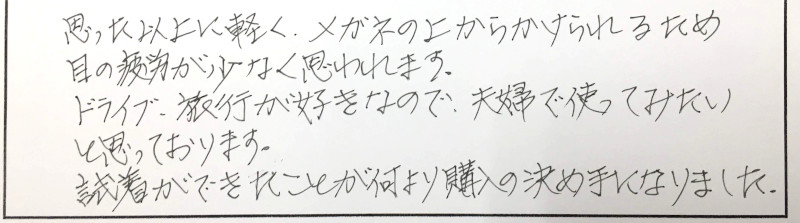 思った以上に軽く、メガネの上からかけられるため
目の疲労が少なく思われます。
ドライブ、旅行が好きなので、夫婦で使ってみたい
と思っております。
試着ができたことが何より購入の決め手になりました。